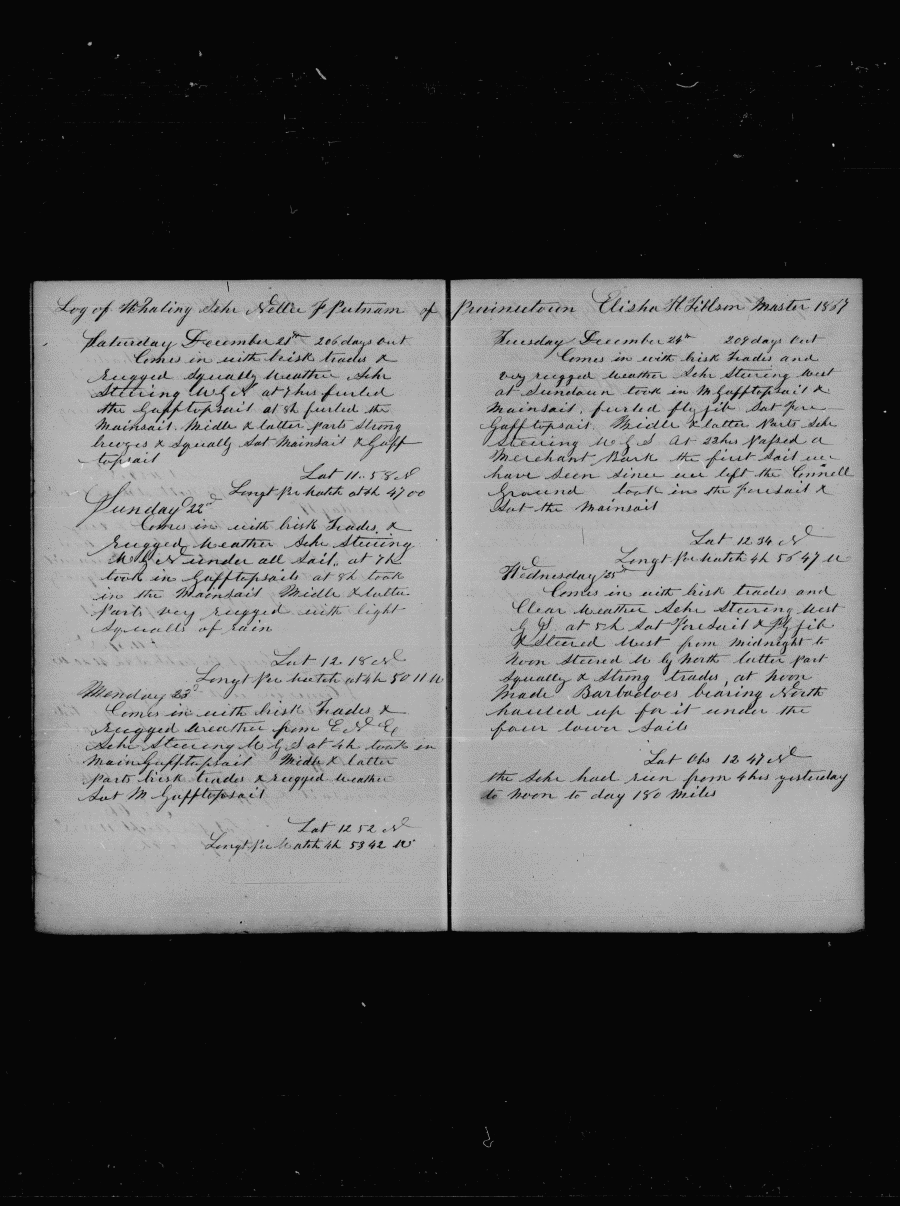 Log of Whaling Schr Nellie J Putnam of
Saturday December 21st 206 days out
Comes in with brisk trades &
rugged squally weather Schr
Steering W by N at 7 hrs furled
the Gafftopsail at 8h furled the
Mainsail. Middle & latter parts strong
breezes & squally Sat Mainsail & Gaff
topsail
Lat 11..58 N
Longt per Watch at 4h 47 00
Sunday 22d
Comes in with brisk Trades &
Rugged Weather Schr Steering
W by N under all sail. at 7h
took in Gafftopsails at 8h took
in the Mainsail Middle & latter
parts very rugged with light
squalls of rain
Lat 12 18 N
Longt per Watch at 4h 50 11 W
Monday 23d
Comes in with brisk Trades &
Rugged Weather from E N E
Schr Steering W by S at 4h took in
Main Gafftopsail Middle & latter
parts brisk trades & rugged weather
Sat M Gafftopsail
Lat 12 52 N
Longt per Watch 4h 53 42 W
Provincetown Elisha H Tillson Master 1867
Tuesday December 24th 209 days out
Comes in with brisk Trades and
very rugged weather Schr Steering West
at Sundown took in M Gafftopsail &
Mainsail. furled fly jib Sat Fore
Gafftopsail. Middle & latter parts Schr
Steering W by S At 22 hrs Passed a
Merchant Bark the first sail we
have seen since we left the Connell
Ground took in the Foresail &
Sat the Mainsail
Lat 12 34 N
Longt per Watch 4h 56 47 W
Wednesday 25th
Comes in with brisk trades and
Clear weather Schr Steering West
by S. at 5h Sat Foresail & fly jib
& Steered West from midnight to
Noon Steered W by North latter part
Squally & strong trades, at Noon
Made Barbadoes bearing North
hauled up for it under the
four lower sails
Lat Obs 12 47 N
the Schr had run from 4 hrs yesterday
to Noon to day 180 miles